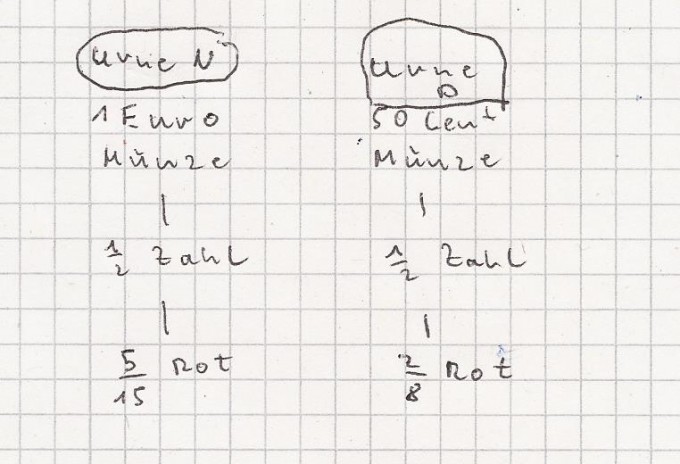 Urne N
1 Euro
Münze
1/2 Zahl
5/15 Rot
Urne
D
50 Cent
Münze
1/2 Zahl
2/8 Rot